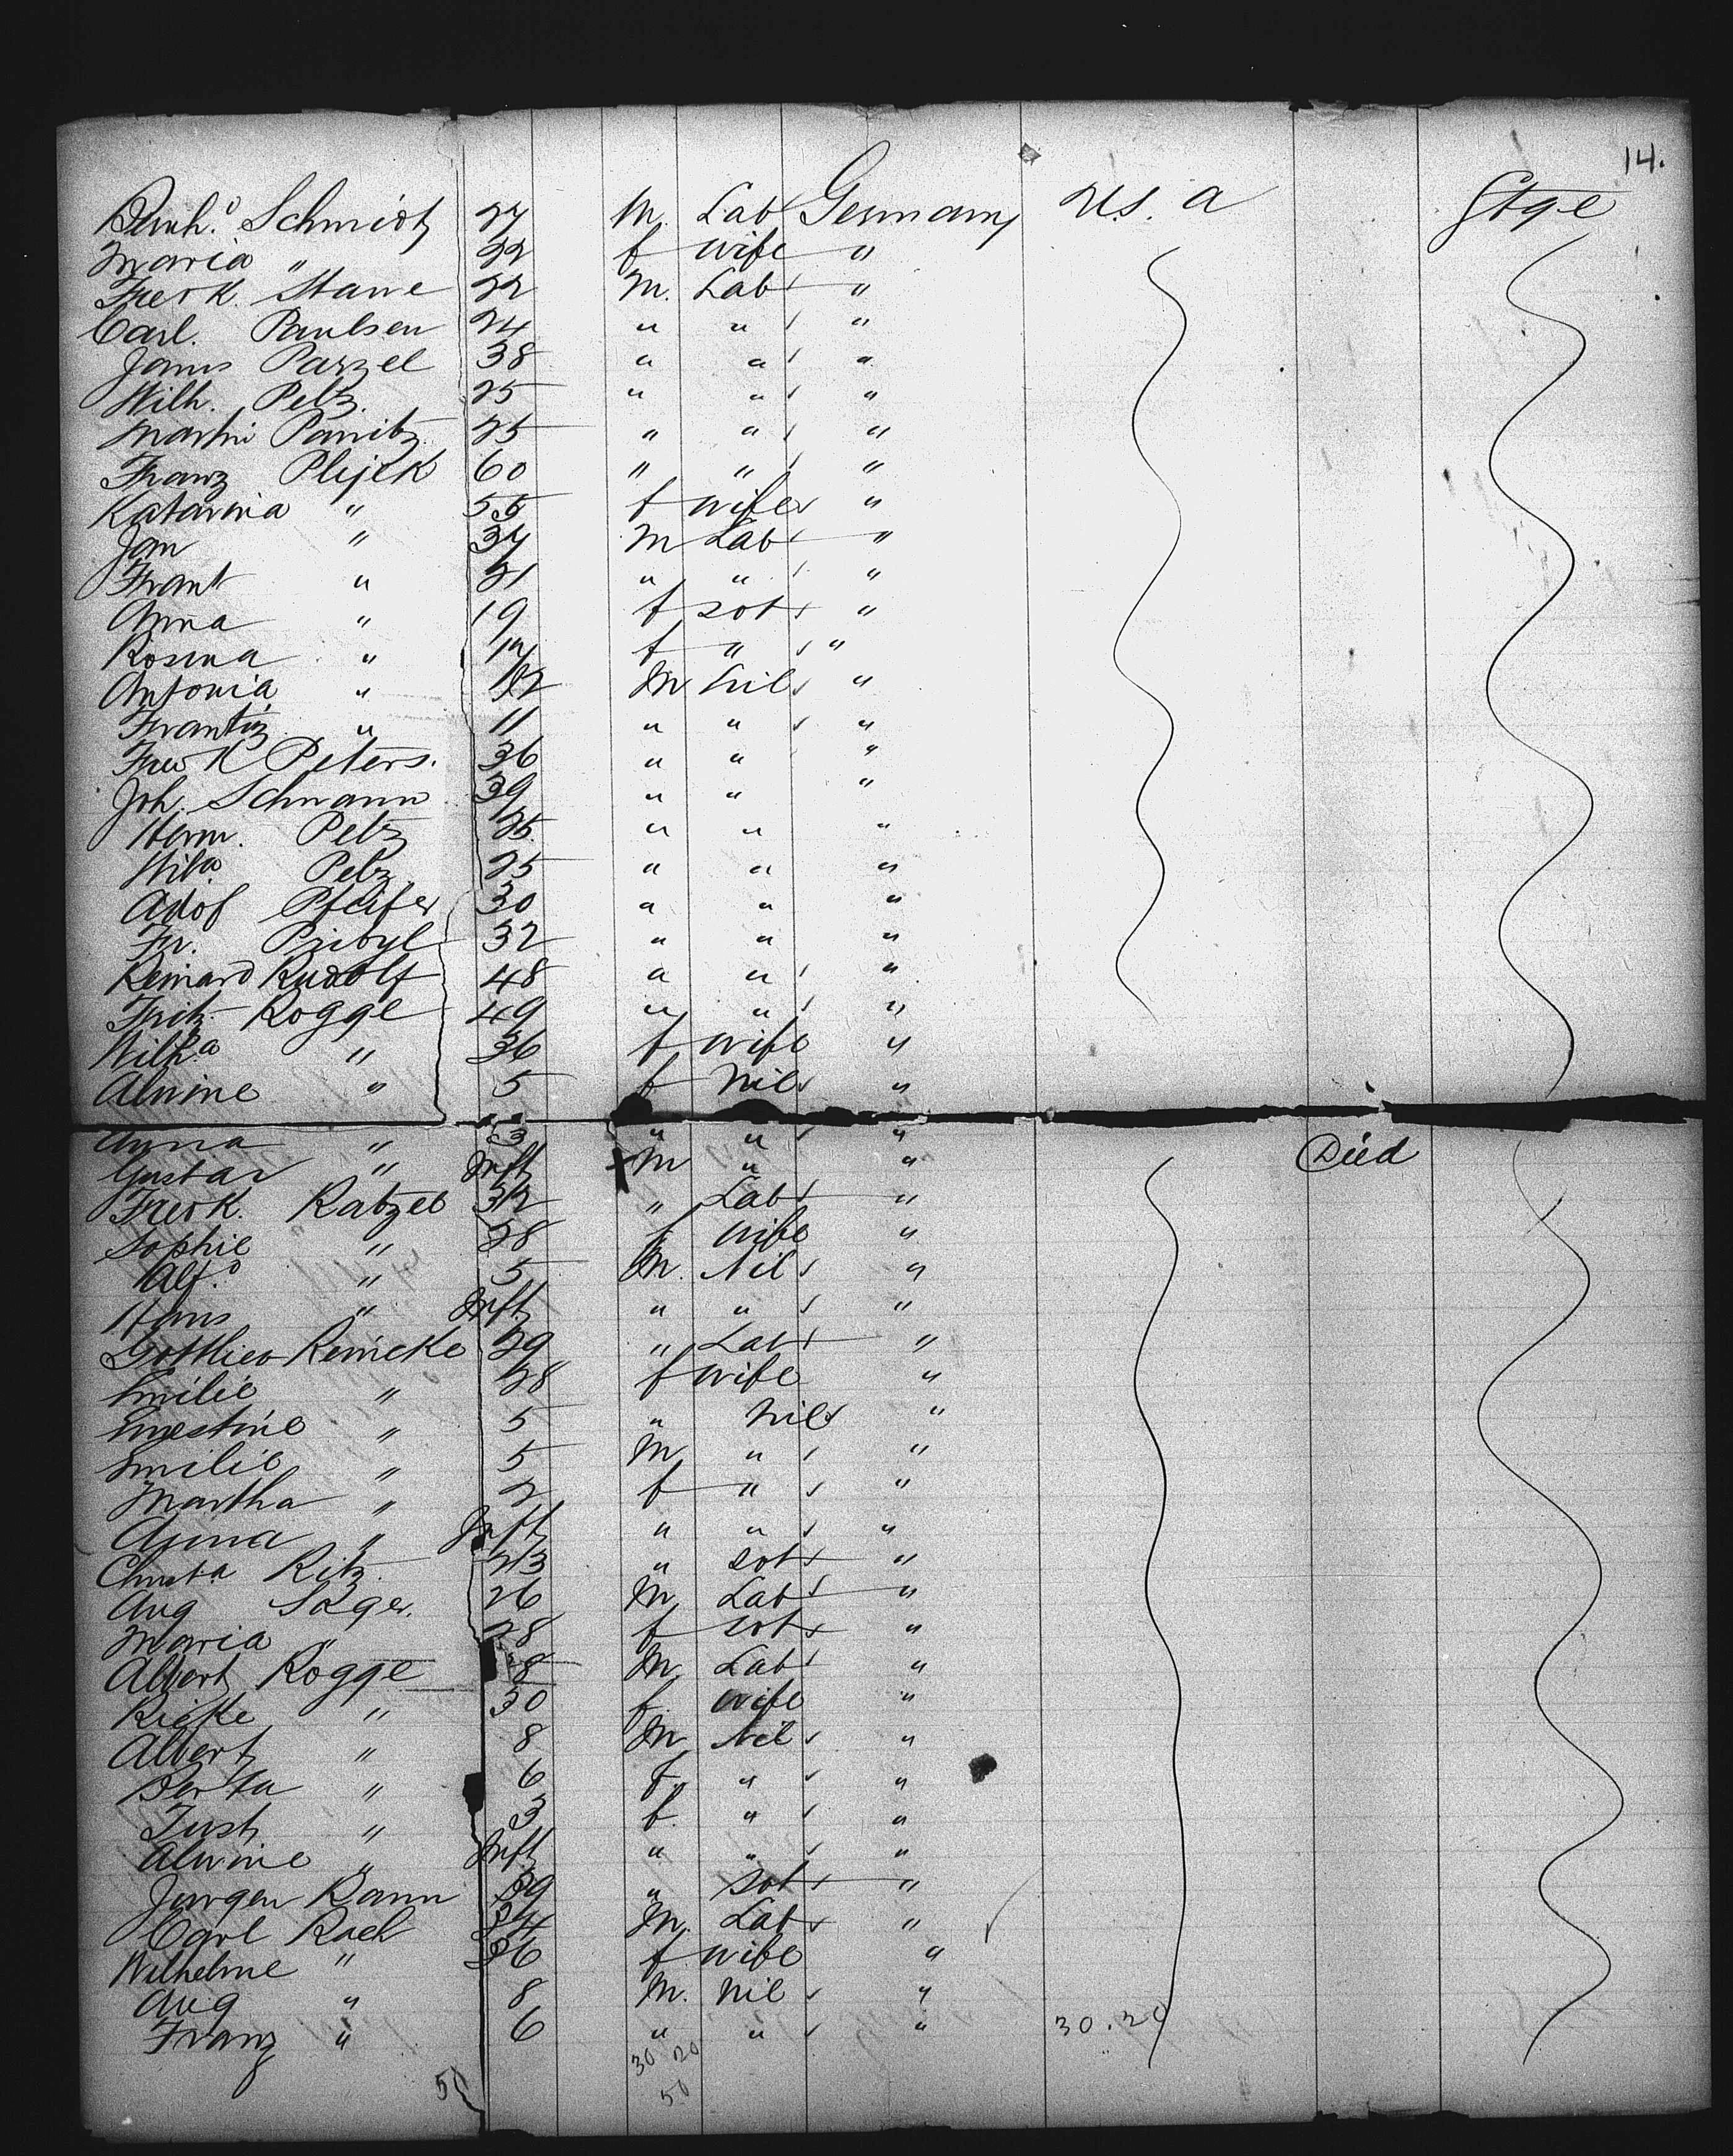 14.
Bernh.d Schmidt 27 M. Lab Germany U.S. a Stge
Maria " 22 f wife "
Fredk. Stawe 22 M. Lab "
Carl. Paulsen 24 " " "
Janis Parzel 38 " " "
Wilh. Pelz. 25 " " "
Martin Panitz 25 " " "
Franz Plijek 60 " " "
Katarina " 55 f wife "
Jan " 34 M Lab "
Frant " 21 " " "
Anna " 19 f sot "
Rosina " 17 f " "
Antonia " 12 M nil "
Frantiz " 11 " " "
Fredk Peters. 36 " " "
Joh. Schwann 39 " " "
Herm. Petz 25 " " "
Wilha Pelz 25 " " "
Adof Pfeifer 30 " " "
Fr. Pribyl 32 " " "
Reinard Rudolf 48 " " "
Fritz Rogge 49 " " "
Wilha " 36 f wife "
Alwine " 5 f nil "
Anna " 3 " " "
Gustav " Inft M " " Died
Fredk. Ratzel 32 " Lab "
Sophie " 28 f wife "
Alf.d " 5 M. Nil "
Hans " Inft " " "
Gottlieb Reinicke 29 " Lab "
Emilie " 28 f wife "
Ernestine " 5 " nil "
Emilie " 5 M " "
Martha " 2 f " "
Anna " Inft " " "
Christ.a Ritz. 23 " sot "
Aug Sager. 26 M Lab "
Maria " 28 f sot "
Albert Rogge 8 M Lab "
Rieke " 30 f wife "
Albert " 8 M Nil "
Berta " 6 f. " "
Just " 3 f. " "
Alwine " Inft " " "
Jurgen Ramm 39 " sot "
Carl Rach 34 M. Lab "
Wilhelme " 36 f wife "
Aug " 8 M. nil "
Franz " 6 " " " 30.20
30 20
50 50